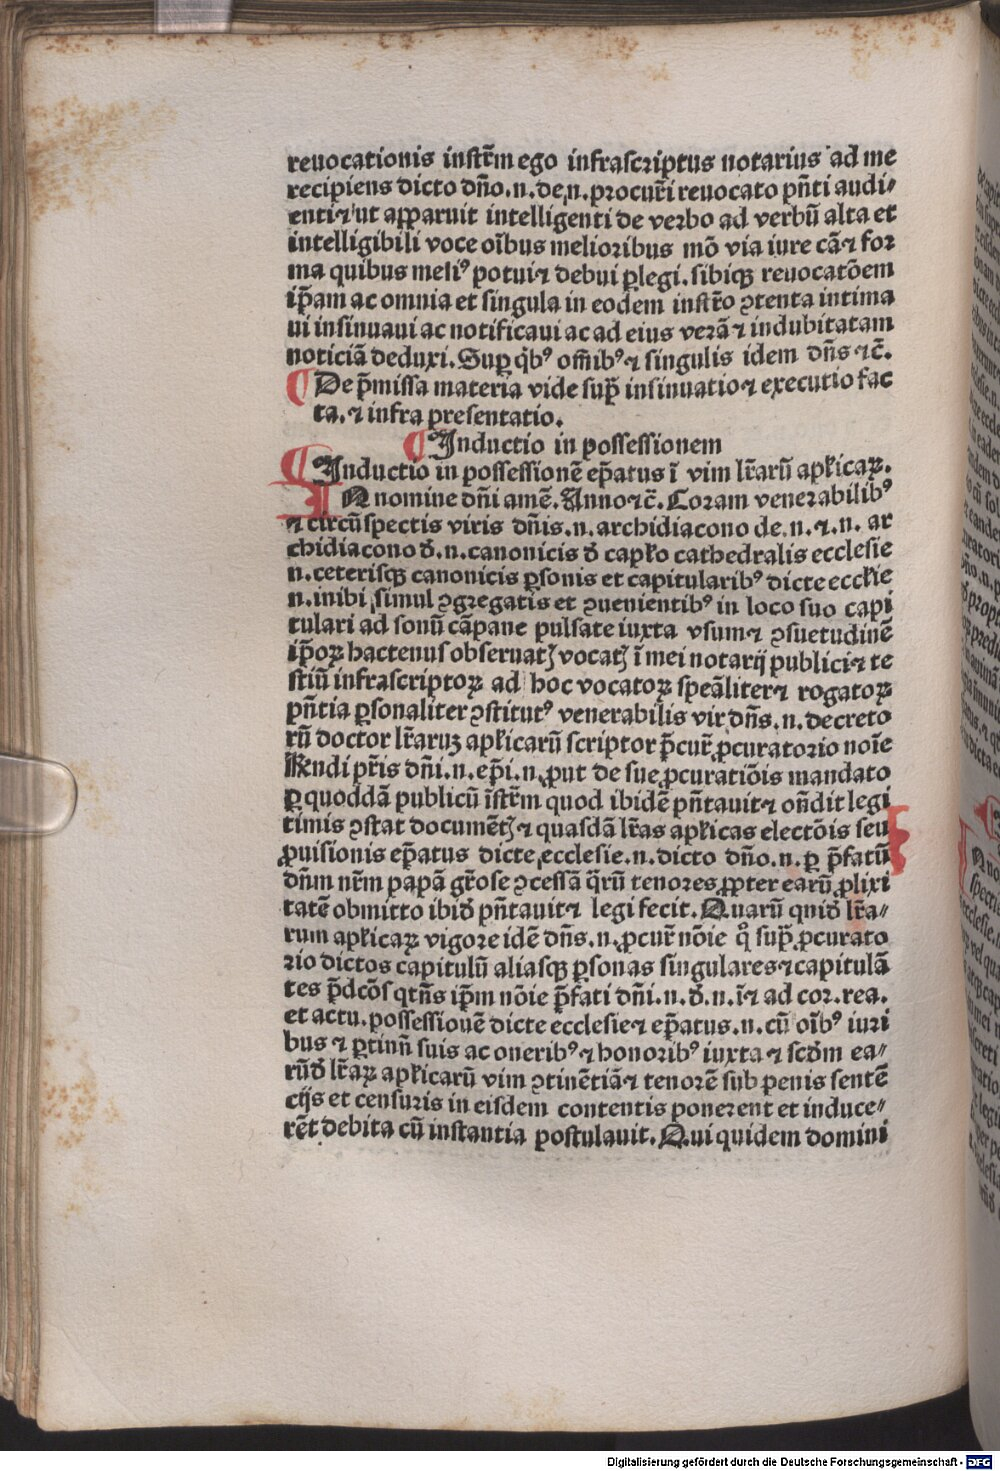 reuocationis instr̄m ego infrascriptus notarius ad me
recipiens dicto dño.n.de.n.procur̄i reuocato pñti audi⸗
enti⁊ ut apparuit intelligenti de verbo ad verbū alta et
intelligibili voce oībus melioribus mō via iure cā⁊ for
ma quibus meliꝰ potui⁊ debui ꝑlegi.sibiqꝫ reuocatōem
ip̄am ac omnia et singula in eodem instr̄o ꝯtenta intima
ui insinuaui ac notificaui ac ad eius verā⁊ indubitatam
noticiā deduxi.Suꝑ qb̄ꝰ om̄ibꝰ⁊ singulis idem dñs ⁊c̄.
¶ De p̄missa materia vide sup̄ insinuatio⁊ executio fac
ta.⁊ infra presentatio.
¶ Inductio in possessionem
¶ Inductio in possessionē ep̄atus ī vim lr̄arū apl̄icaꝝ.
IN nomine dñi amē.Anno⁊c̄.Coram venerabilibꝰ
⁊ circūspectis viris dñis.n.archidiacono de.n.⁊.n.ar
chidiacono đ.n.canonicis đ capl̄o cathedralis ecclesie
n.ceterisqꝫ canonicis ꝑsonis et capitularibꝰ dicte eccl̄ie
n.inibi simul ꝯgregatis et ꝯuenientibꝰ in loco suo capi
tulari ad sonū cāpane pulsate iuxta vsum⁊ ꝯsuetudinē
ip̄oꝝ hactenus obseruatꝭ vocatꝭ ī mei notarij publici⁊ te
stiū infrascriptoꝝ ad hoc vocatoꝝ speāliter⁊ rogatoꝝ
pñtia ꝑsonaliter ꝯstitutꝰ venerabilis vir dñs.n.decreto
rū doctor lr̄aruꝫ apl̄icarū scriptor p̄cur̄ ꝓcuratorio noīe
Rendi pr̄is dñi.n.ep̄i.n.ꝓut de sue ꝓcuratiōis mandato
ꝑ quoddā publicū īstr̄m quod ibidē pñtauit⁊ oñdit legi
timis ꝯstat documētꝭ⁊ quasdā lr̄as apl̄icas electōis seu
ꝓuisionis ep̄atus dicte ecclesie.n.dicto dño.n.ꝑ p̄fatū
dñm nr̄m papā gr̄ose ꝯcessā q̄rū tenores ꝓpter earū ꝓlixi
tatē obmitto ibiđ pñtauit⁊ legi fecit.Quarū quiđ lr̄a⸗
rum apl̄icaꝝ vigore idē dñs.n.ꝓcur̄ nōie q̊ sup̄ ꝓcurato
rio dictos capitulū aliasqꝫ ꝑsonas singulares⁊capitulā
tes p̄dcōs qtn̄s ip̄m nōie p̄fati dñi.n.đ.n.ī⁊ ad cor.rea.
et actu.possessionē dicte ecclesie⁊ ep̄atus.n.cū oībꝰ iuri
bus ⁊ ꝑtinn̄ suis ac oneribꝰ⁊ honoribꝰ iuxta ⁊ scđm ea⸗
rūđ lr̄aꝝ apl̄icarū vim ꝯtinētiā⁊ tenorē sub penis sentē
cijs et censuris in eisdem contentis ponerent et induce⸗
rēt debita cū instantia postulauit.Qui quidem domini
Digitalisierung gefördert durch die Deutsche Forschungsgemeinschaft - DFG